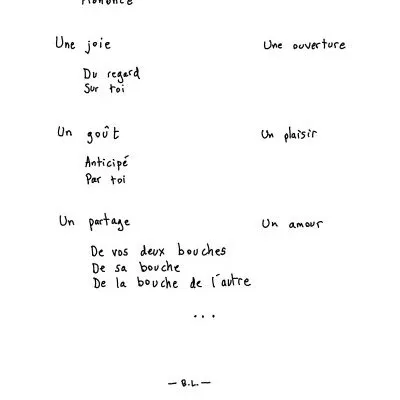 Prononcé
Une joie Une ouverture
Du regard
Sur toi
Un goût Un plaisir
Anticipé
Par toi
Un partage Un amour
De vos deux bouches
De sa bouche
De la bouche de l'autre
...
— B.L. —